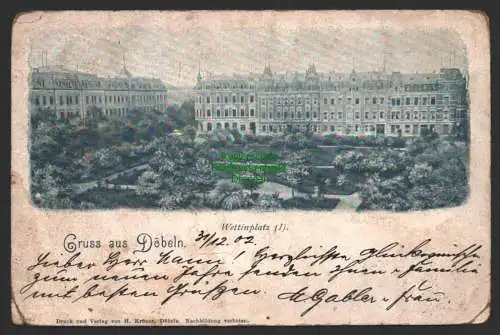 Wettinplatz (I).
Gruss aus Döbeln. 31/12 02
Lieber Herr Hann! Herzlichste Glückwünsche
zum neuen Jahre senden Ihnen & Familie
mit besten Grüßen. Gabler & Frau.
Druck und Verlag von H. Krönert, Döbeln. Nachbildung verboten.